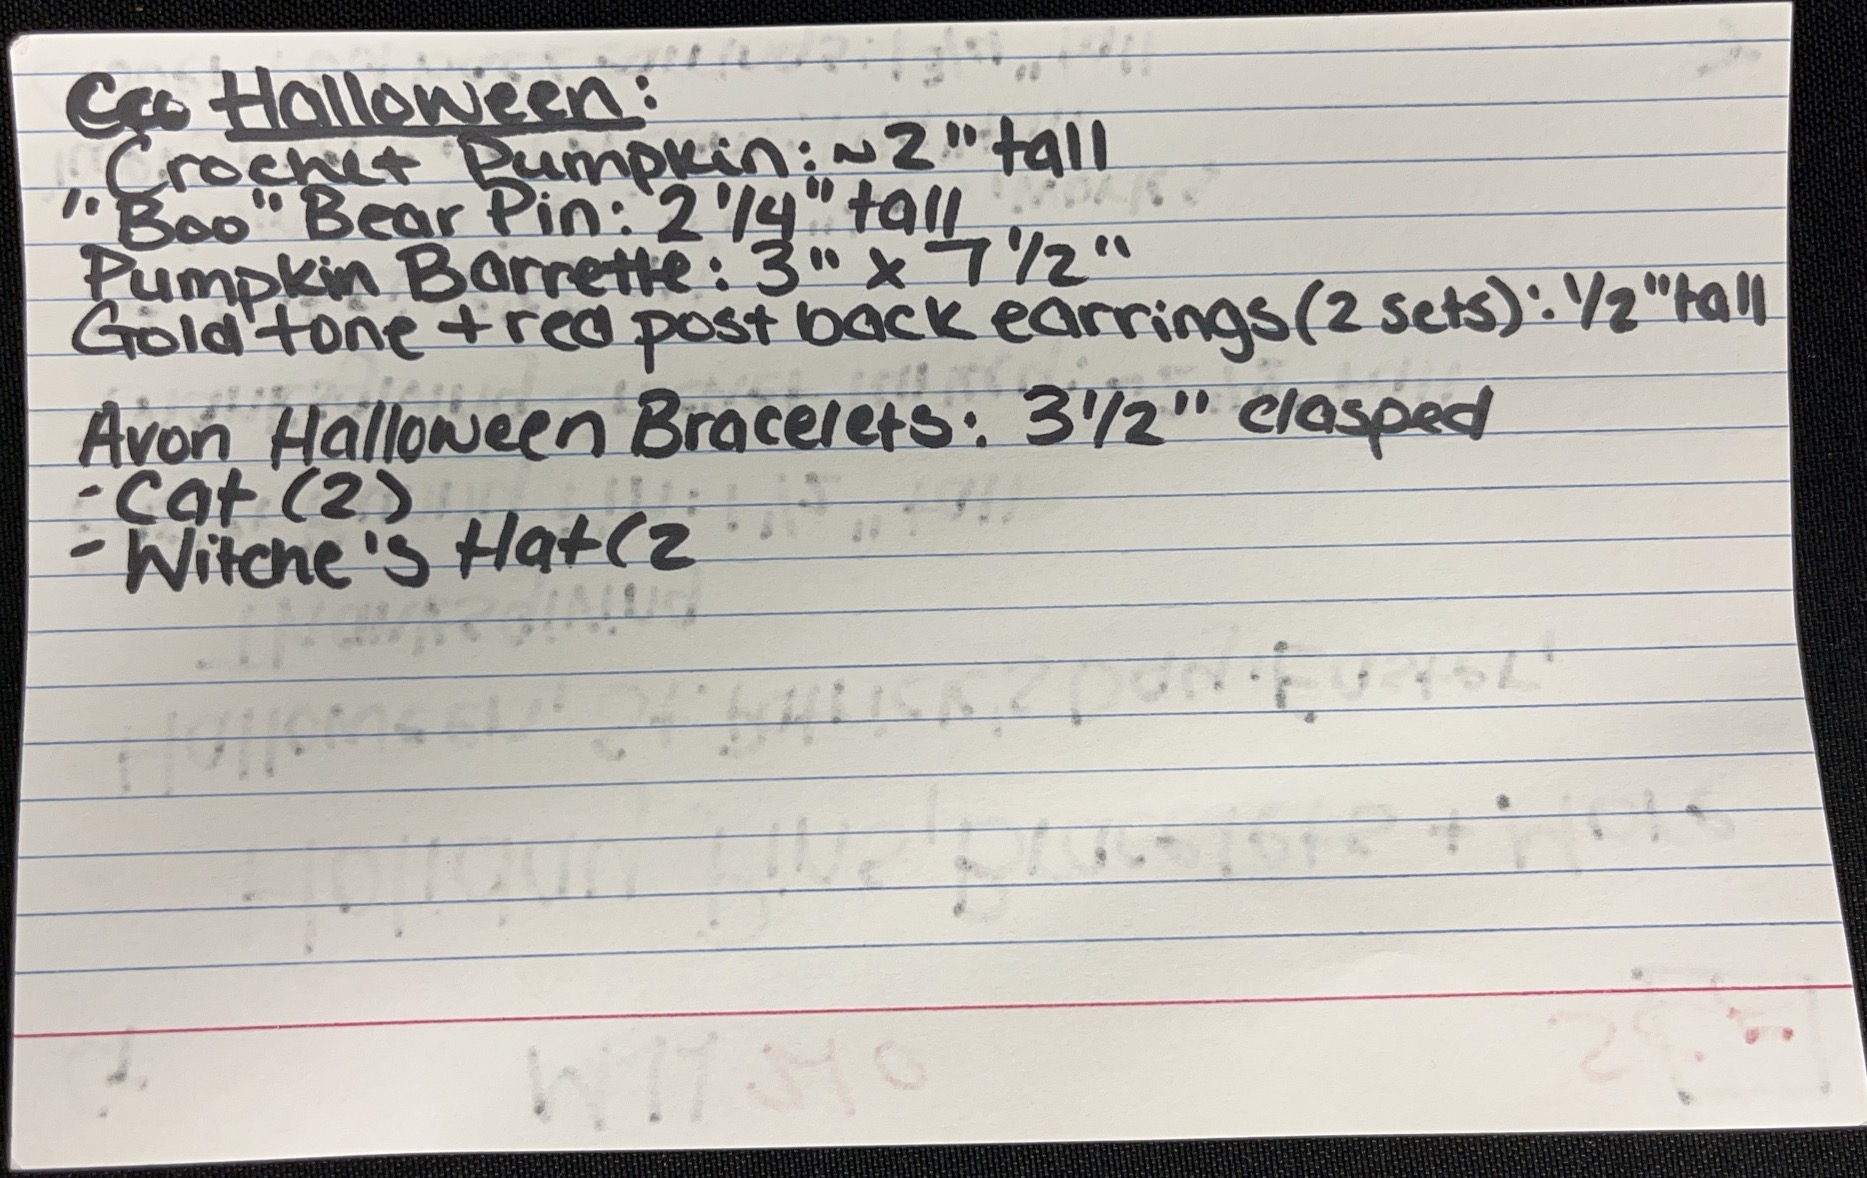 Halloween:
Crochet Pumpkin: ~2" tall
"Boo" Bear Pin: 2 1/4" tall
Pumpkin Barrette: 3" x 7 1/2"
Gold tone + red post back earrings (2 sets): 1/2" tall
Avon Halloween Bracelets: 3 1/2" clasped
- Cat (2)
- Witche's Hat (2